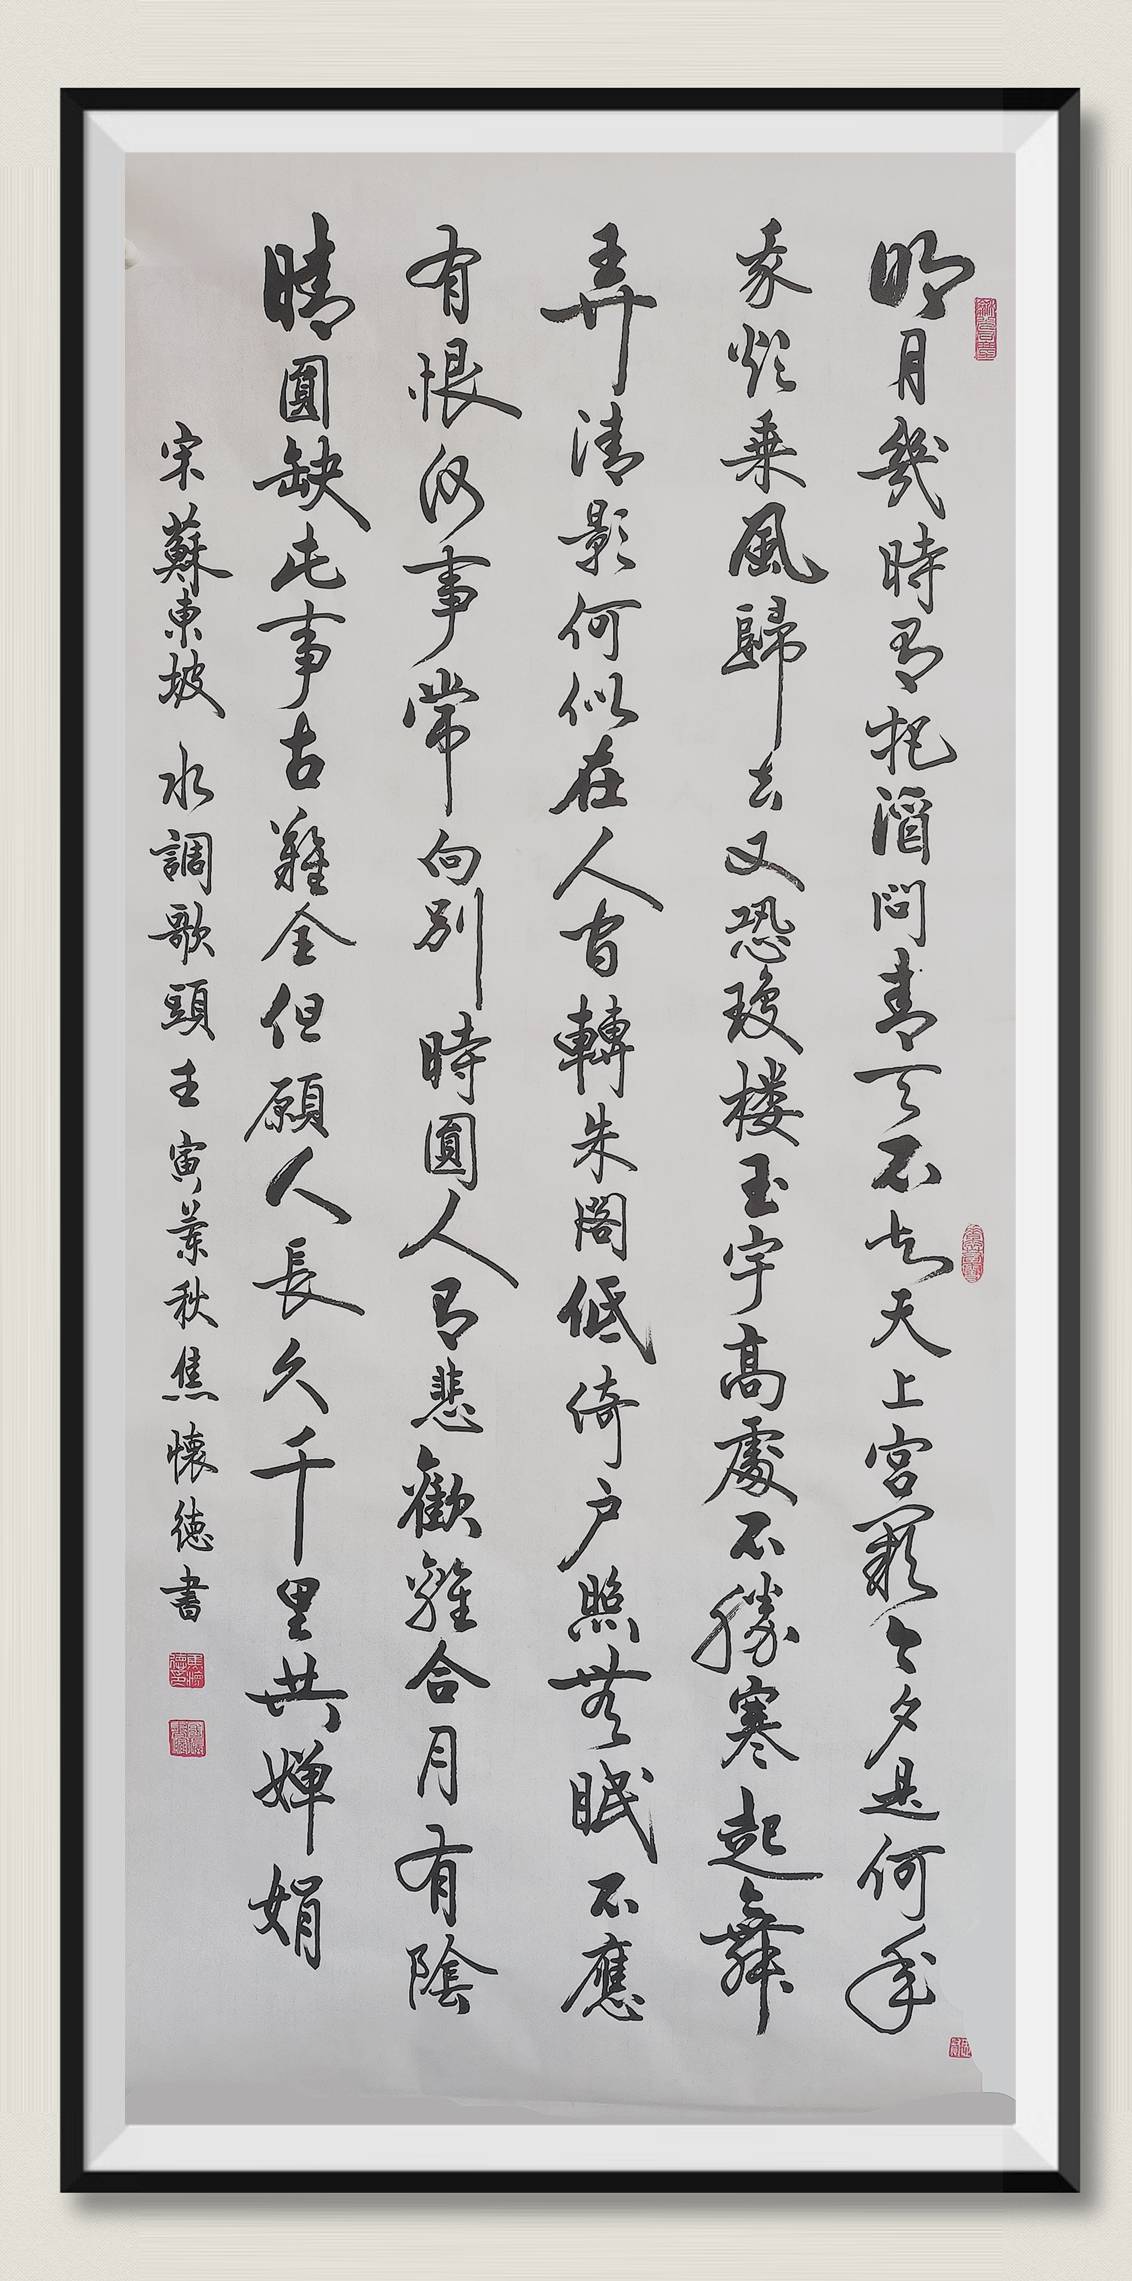 明月幾時有把酒問青天不知天上宮闕今夕是何年
我欲乘風歸去又恐瓊楼玉宇高處不勝寒起舞
弄清影何似在人間轉朱閣低倚户照無眠不應
有恨何事常向別時圓人有悲歡離合月有陰
晴圓缺此事古難全但願人長久千里共嬋娟
宋蘇東坡水調歌頭壬寅蘭秋焦懷德書
焦懷德印